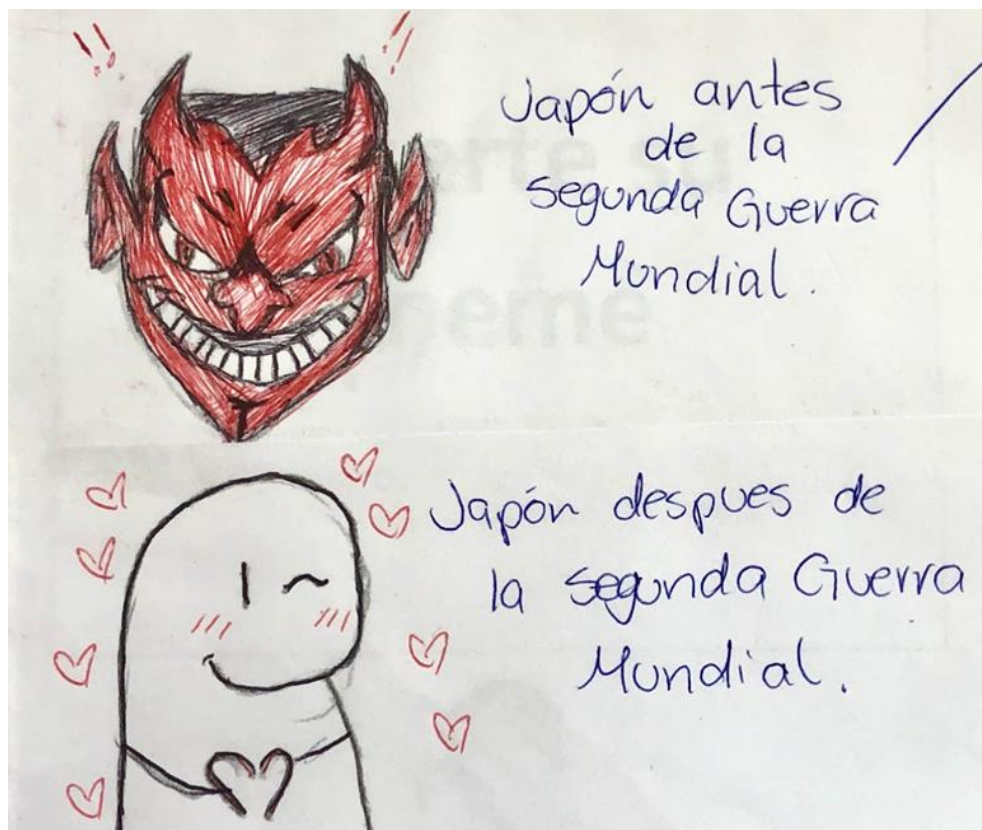 Japón antes
de la
segunda Guerra
Mundial.
Japón despues de
la segunda Guerra
Mundial.